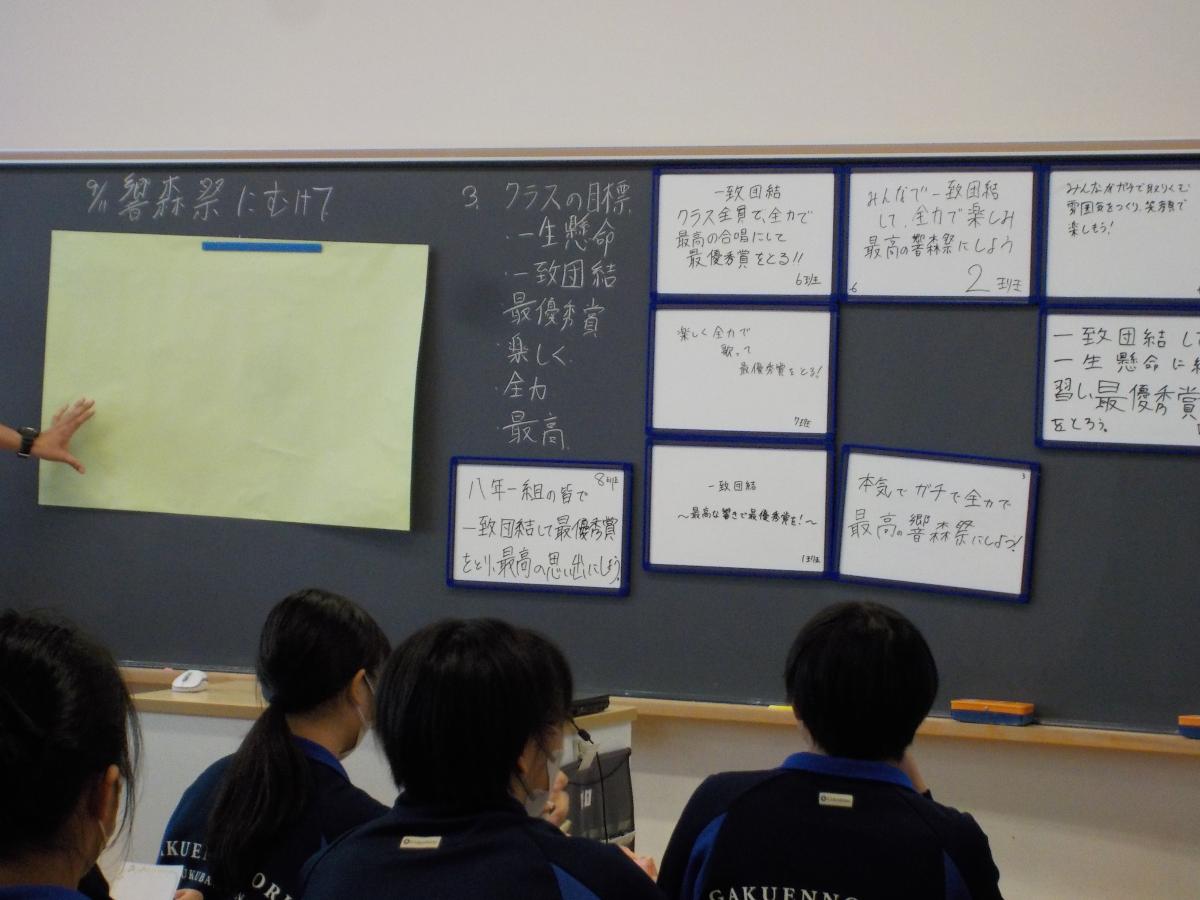 9/11 響森祭にむけて
3. クラスの目標
・一生懸命
・一致団結
・最優秀賞
・楽しく
・全力
・最高
一致団結
クラス全員で、全力で
最高の合唱にして
最優秀賞をとる!!
6班
みんなで一致団結
して、全力で楽しみ
最高の響森祭にしよう
2班
みんながガチで取りくむ
雰囲気をつくり、笑顔で
楽しもう!
楽しく全力で
歌って
最優秀賞をとる!
7班
一致団結し
一生懸命に
習し、最優秀賞
をとろう。
8班
八年一組の皆で
一致団結して最優秀賞
をとり、最高の思い出にしよう。
一致団結
〜最高な響きで最優秀賞を!〜
1班
3
本気でガチで全力で
最高の響森祭にしよう!
GAKUENNO